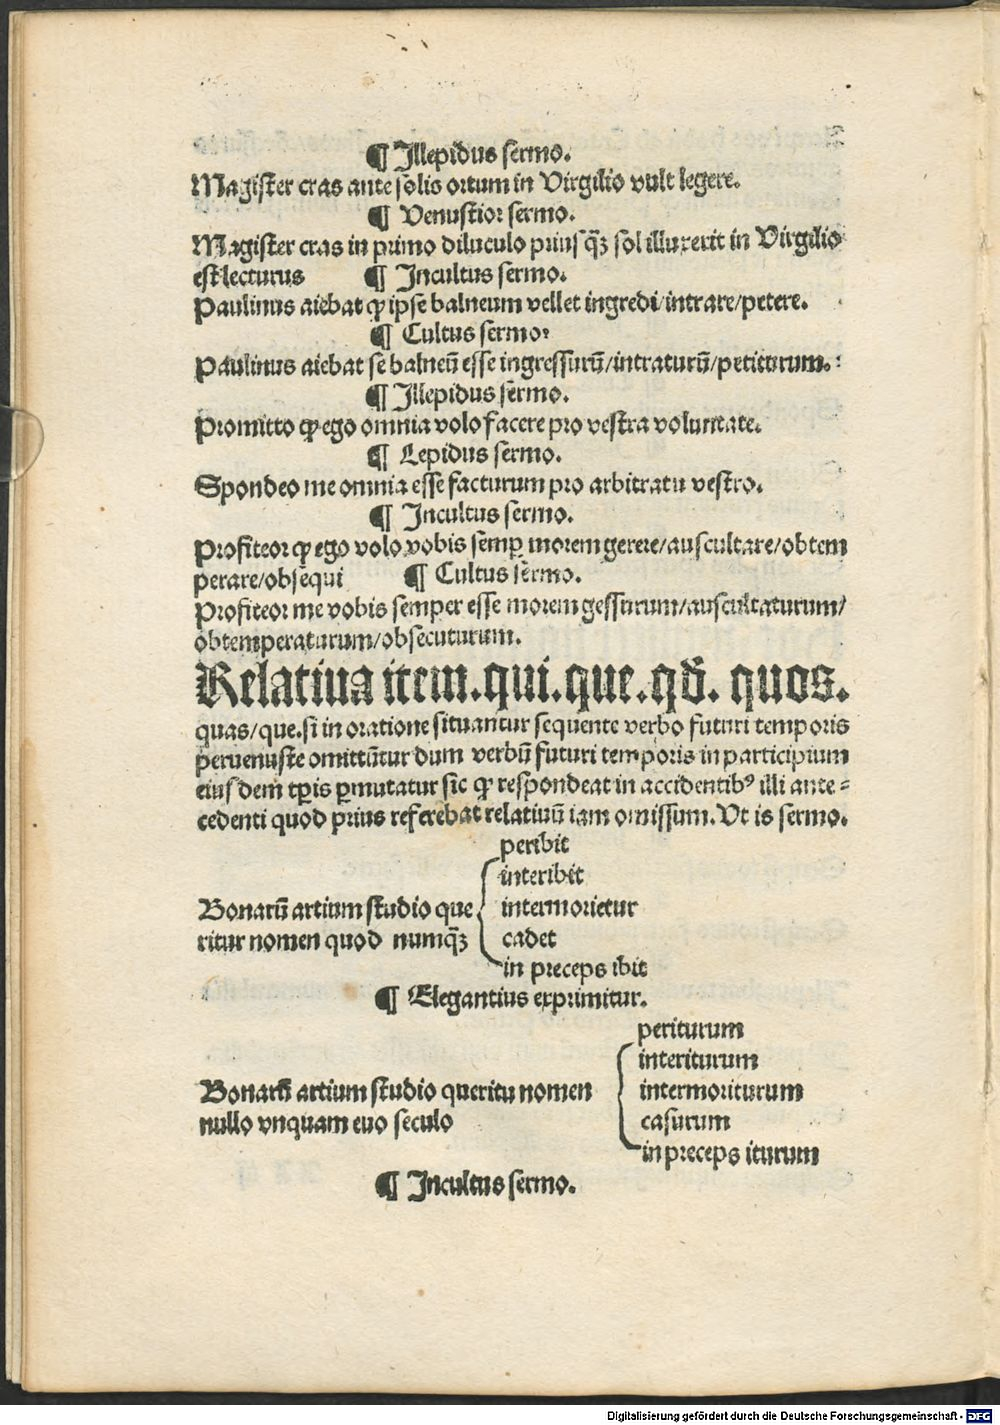 ¶ Illepidus sermo.
Magister cras ante solis ortum in Virgilio vult legere.
¶ Venustior sermo.
Magister cras in primo diluculo priusqꝫ sol illuxerit in Virgilio
est lecturus ¶ Incultus sermo.
Paulinus aiebat ꝙ ipse balneum vellet ingredi/intrare/petere.
¶ Cultus sermo:
Paulinus aiebat se balneū esse ingressurū/intraturū/petiturum.:
¶ Illepidus sermo.
Promitto ꝙ ego omnia volo facere pro vestra voluntate.
¶ Lepidus sermo.
Spondeo me omnia esse facturum pro arbitratu vestro.
¶ Incultus sermo.
Profiteor ꝙ ego volo vobis semꝑ morem gerere/auscultare/obtem
perare/obsequi ¶ Cultus sermo.
Profiteor me vobis semper esse morem gessurum/auscultaturum/
obtemperaturum/obsecuturum.
Relatiua item.qui.que.qđ.quos.
quas/que.si in oratione situantur sequente verbo futuri temporis
peruenuste omittūtur dum verbū futuri temporis in participium
eiusdem tꝑis ꝑmutatur sic ꝙ respondeat in accidentibꝰ illi ante⸗
cedenti quod prius referebat relatiuū iam omissum. Vt is sermo.
peribit
interibit
Bonarū artium studio que intermorietur
ritur nomen quod numqꝫ cadet
in preceps ibit
¶ Elegantius exprimitur.
periturum
interiturum
Bonarū artium studio queritu nomen intermoriturum
nullo vnquam euo seculo casurum
in preceps iturum
¶ Incultus sermo.
Digitalisierung gefördert durch die Deutsche Forschungsgemeinschaft - DFG